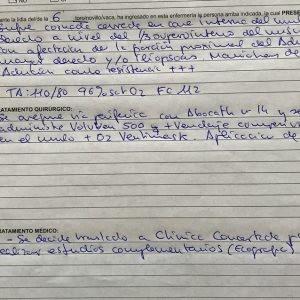 nte la lidia del 6 toro/novillo/vaca, ha ingresado en esta enfermería la persona arriba indicada, la cual PRESE
Sufre cornada cerrada en cara interna del mu
derecho a nivel del 1/3 superointerno del mus
con afectación de la porción proximal del Adu
mayor derecho y/o Iliopsoas.
Adución como resistencia +++
TA: 110/80 96% sat O2 FC 112
RATAMIENTO QUIRÚRGICO:
Se asegura vía periférica con Abocath nº 14 y se
administra Voluven 500 + Vendaje compresiv
en el muslo + O2 Ventimask. Aplicación de
RATAMIENTO MÉDICO:
- Se decide traslado a Clínica Concertada pa
realizar estudios complementarios (Ecografía)